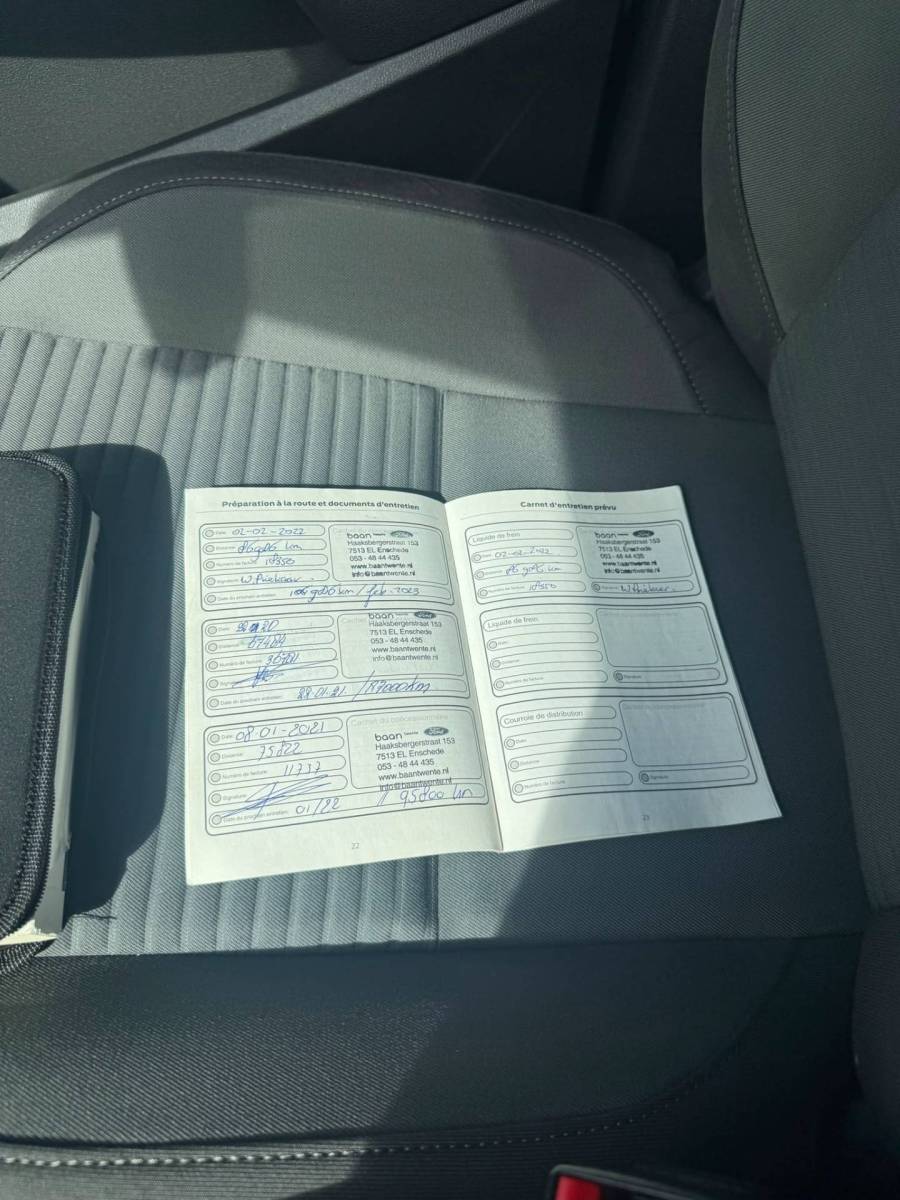 Préparation à la route et documents d'entretien
Date: 02-02-2022
Distance:
km
Numéro de facture:
Signature:
Date du prochain entretien:
km / feb. 2023
baan twente Ford
Haaksbergerstraat 153
7513 EL Enschede
053 - 48 44 435
www.baantwente.nl
info@baantwente.nl
Date:
Distance:
Numéro de facture:
Signature:
Date du prochain entretien:
baan twente Ford
Haaksbergerstraat 153
7513 EL Enschede
053 - 48 44 435
www.baantwente.nl
info@baantwente.nl
Date: 08-01-2021
Distance: 75822
Numéro de facture: 11737
Signature:
Date du prochain entretien: 01/22 // 95800 km
Cachet du concessionnaire
baan twente Ford
Haaksbergerstraat 153
7513 EL Enschede
053 - 48 44 435
www.baantwente.nl
info@baantwente.nl
22
Carnet d'entretien prévu
Liquide de frein
Date: 02-02-2022
Distance:
km
Numéro de facture:
Signature:
baan twente Ford
Haaksbergerstraat 153
7513 EL Enschede
053 - 48 44 435
www.baantwente.nl
info@baantwente.nl
Liquide de frein
Date:
Distance:
Numéro de facture:
Signature:
Courroie de distribution
Date:
Distance:
Numéro de facture:
Signature:
23